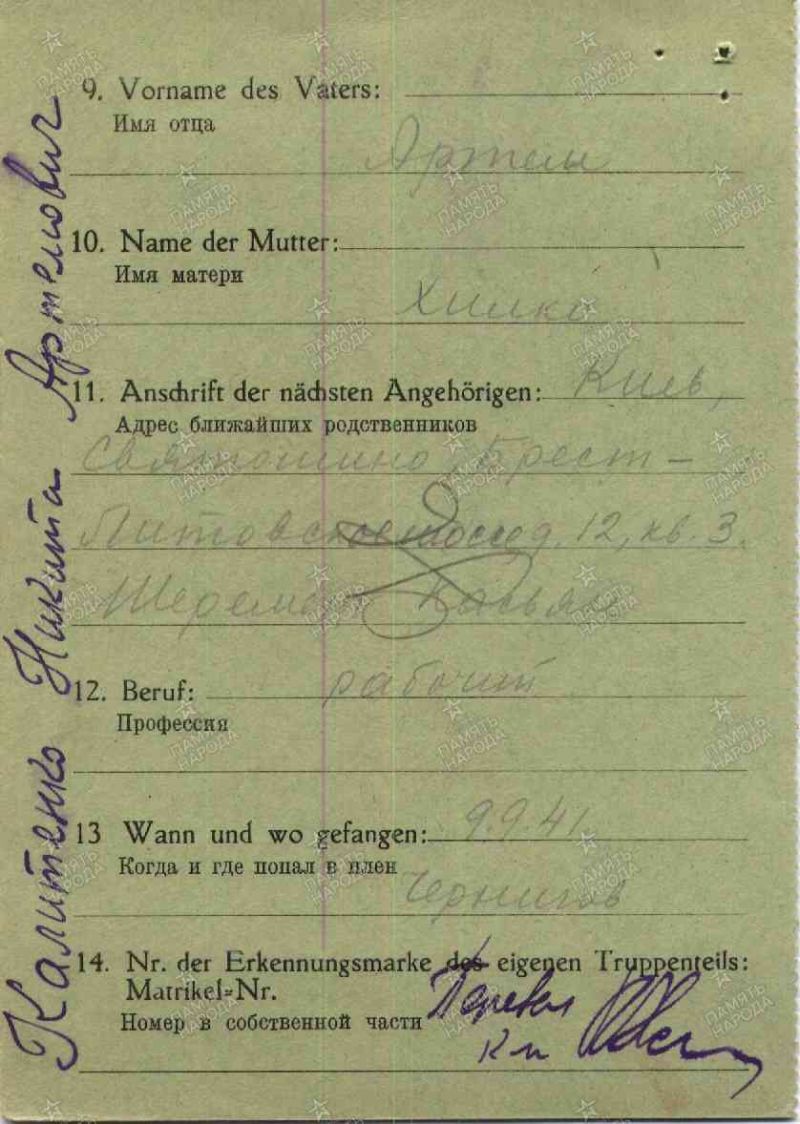 9. Vorname des Vaters:
Имя отца
Артем
10. Name der Mutter:
Имя матери
Химка
11. Anschrift der nächsten Angehörigen: Киев,
Адрес ближайших родственников
Святошино, Брест-
Литовское шоссе д. 12, кв. 3.
Касьян
12. Beruf: рабочий
Профессия
13 Wann und wo gefangen: 9.9.41
Когда и где попал в плен
Чернигов
14. Nr. der Erkennungsmarke des eigenen Truppenteils:
Matrikel=Nr.
Номер в собственной части
Перевел
Калитенко Никита Артемович
ПАМЯТЬ НАРОДА